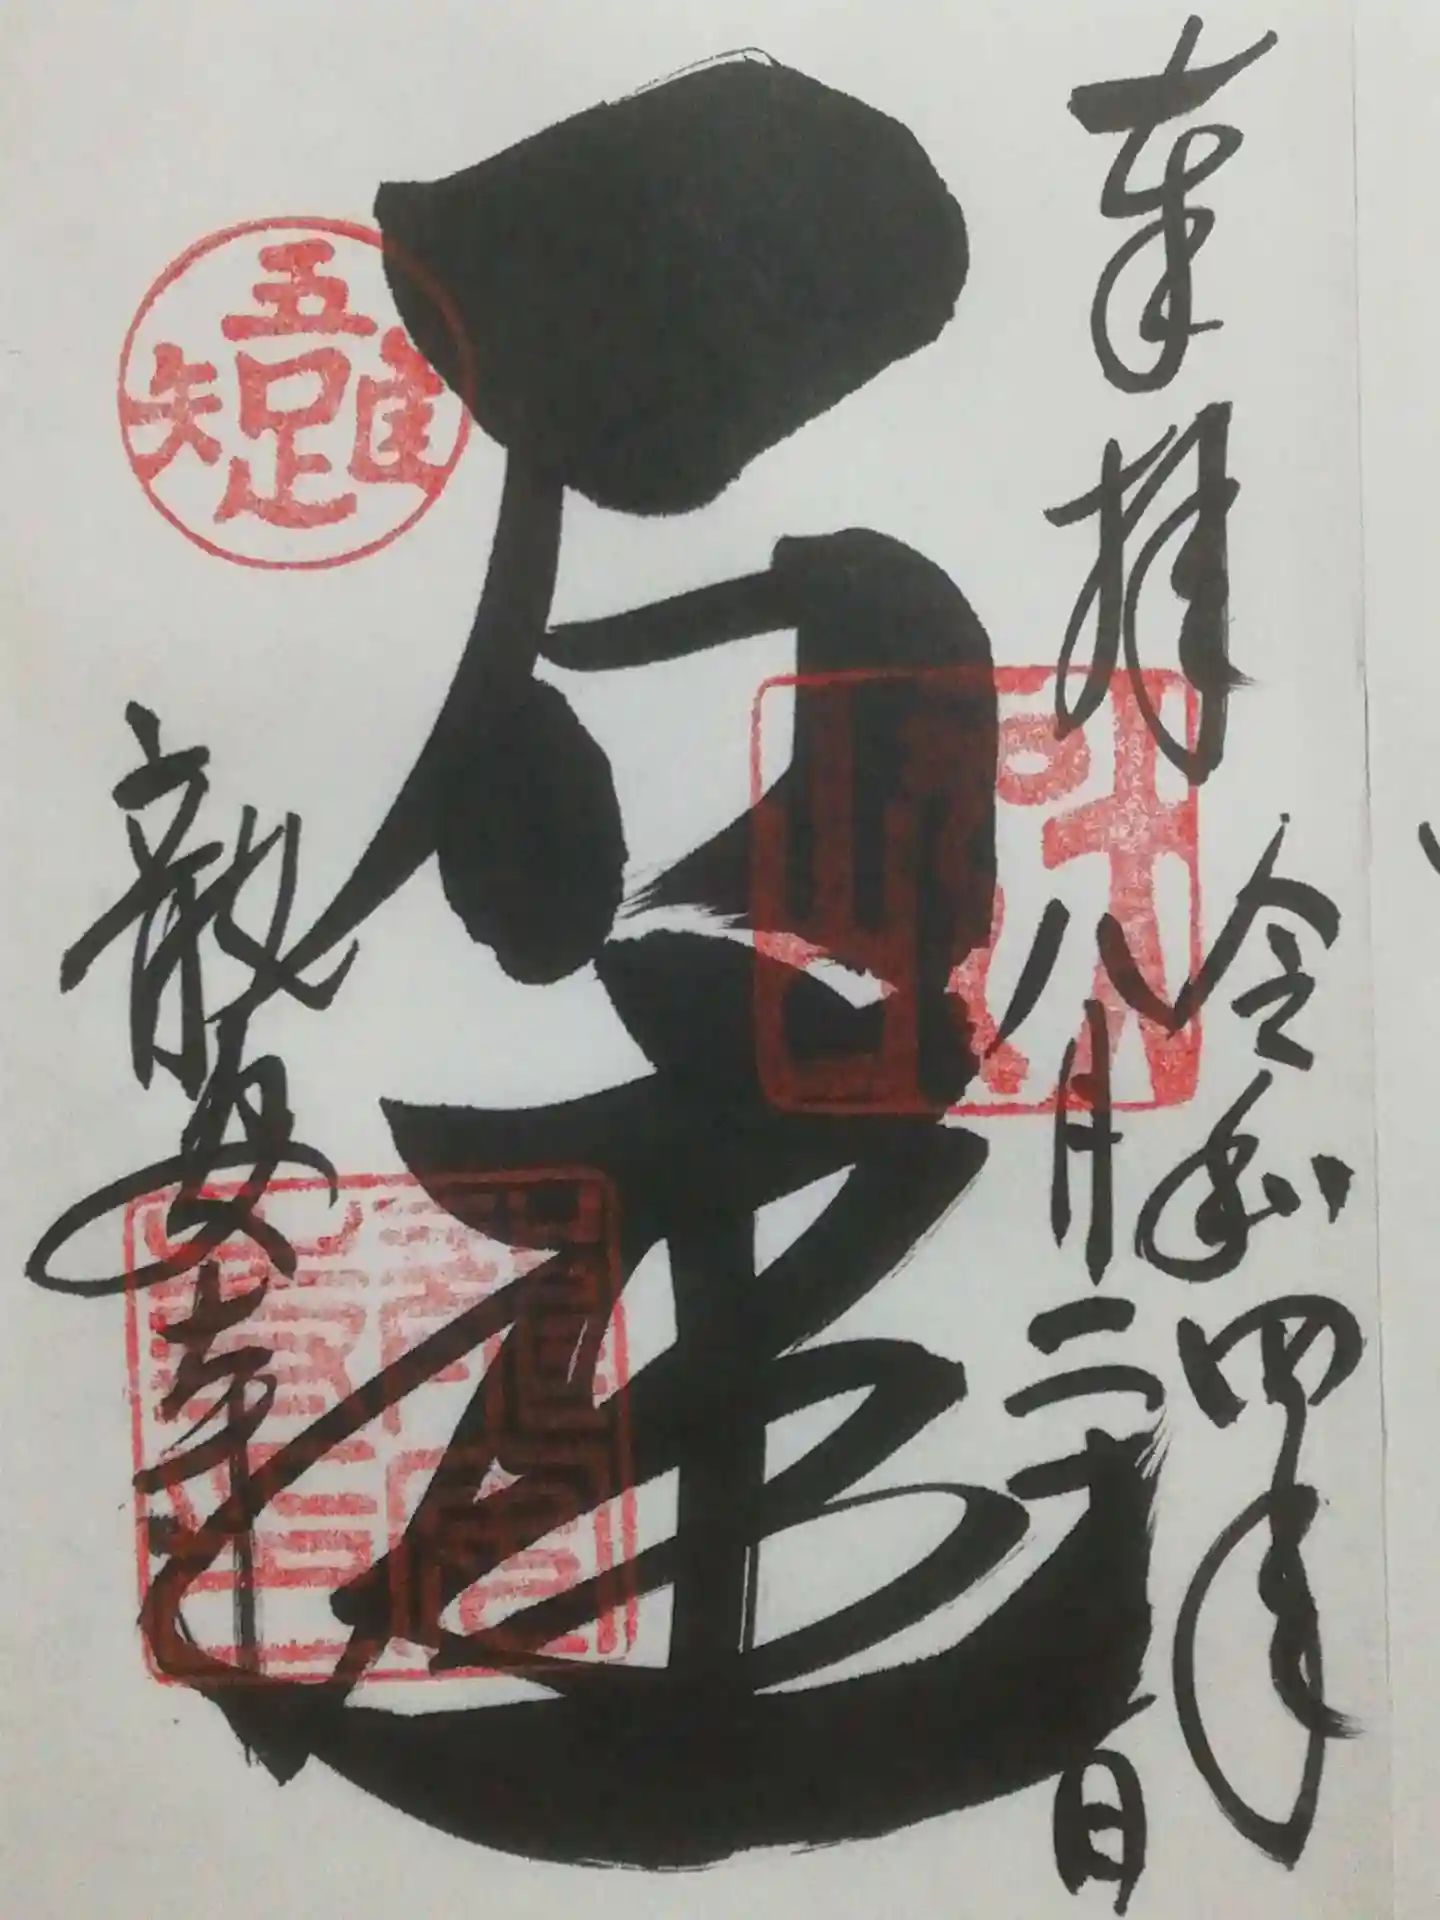 奉拝
令和四年
八月二十日
石庭
吾唯足知
龍安寺